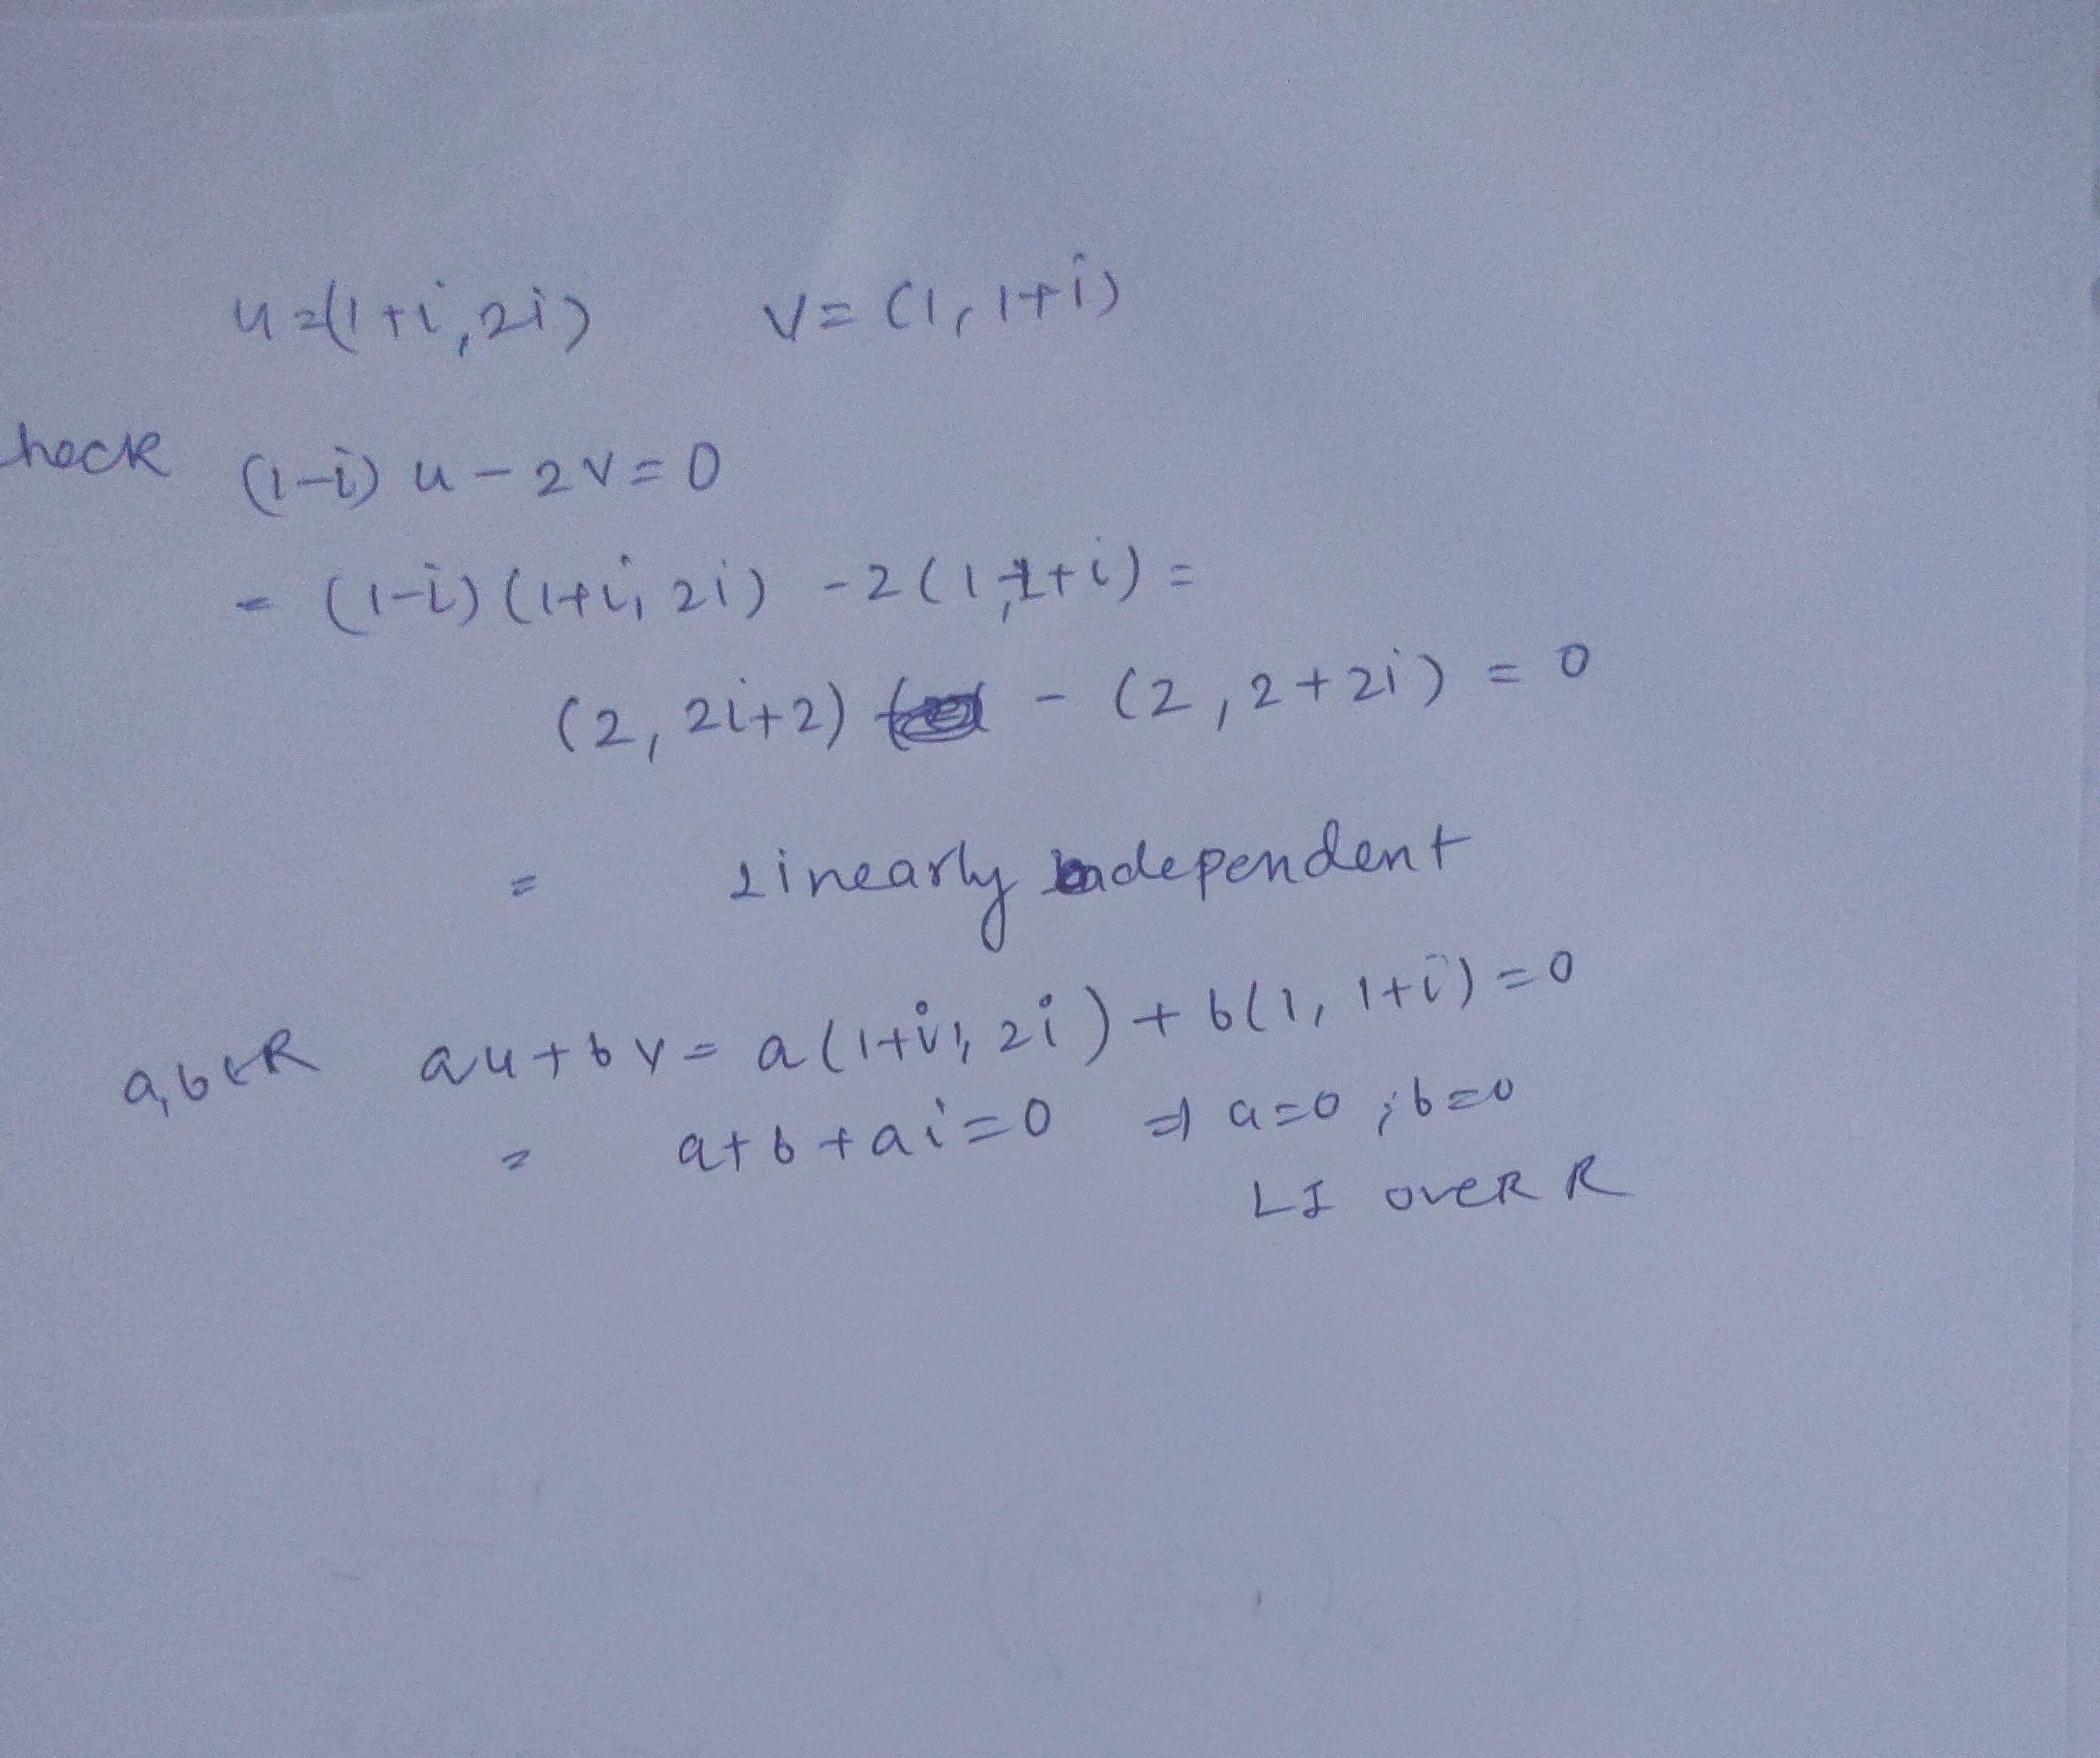 u=(1+i,2i) v=(1,1+i)
heck (1-i) u - 2v=0
= (1-i)(1+i, 2i) -2(1,1+i)=
(2, 2i+2) - (2,2+2i) = 0
= Linearly dependent
a,b∈R au+bv= a(1+i, 2i)+b(1, 1+i)=0
= a+b+ai=0 ⇒ a=0 ; b=0
LI oveR R